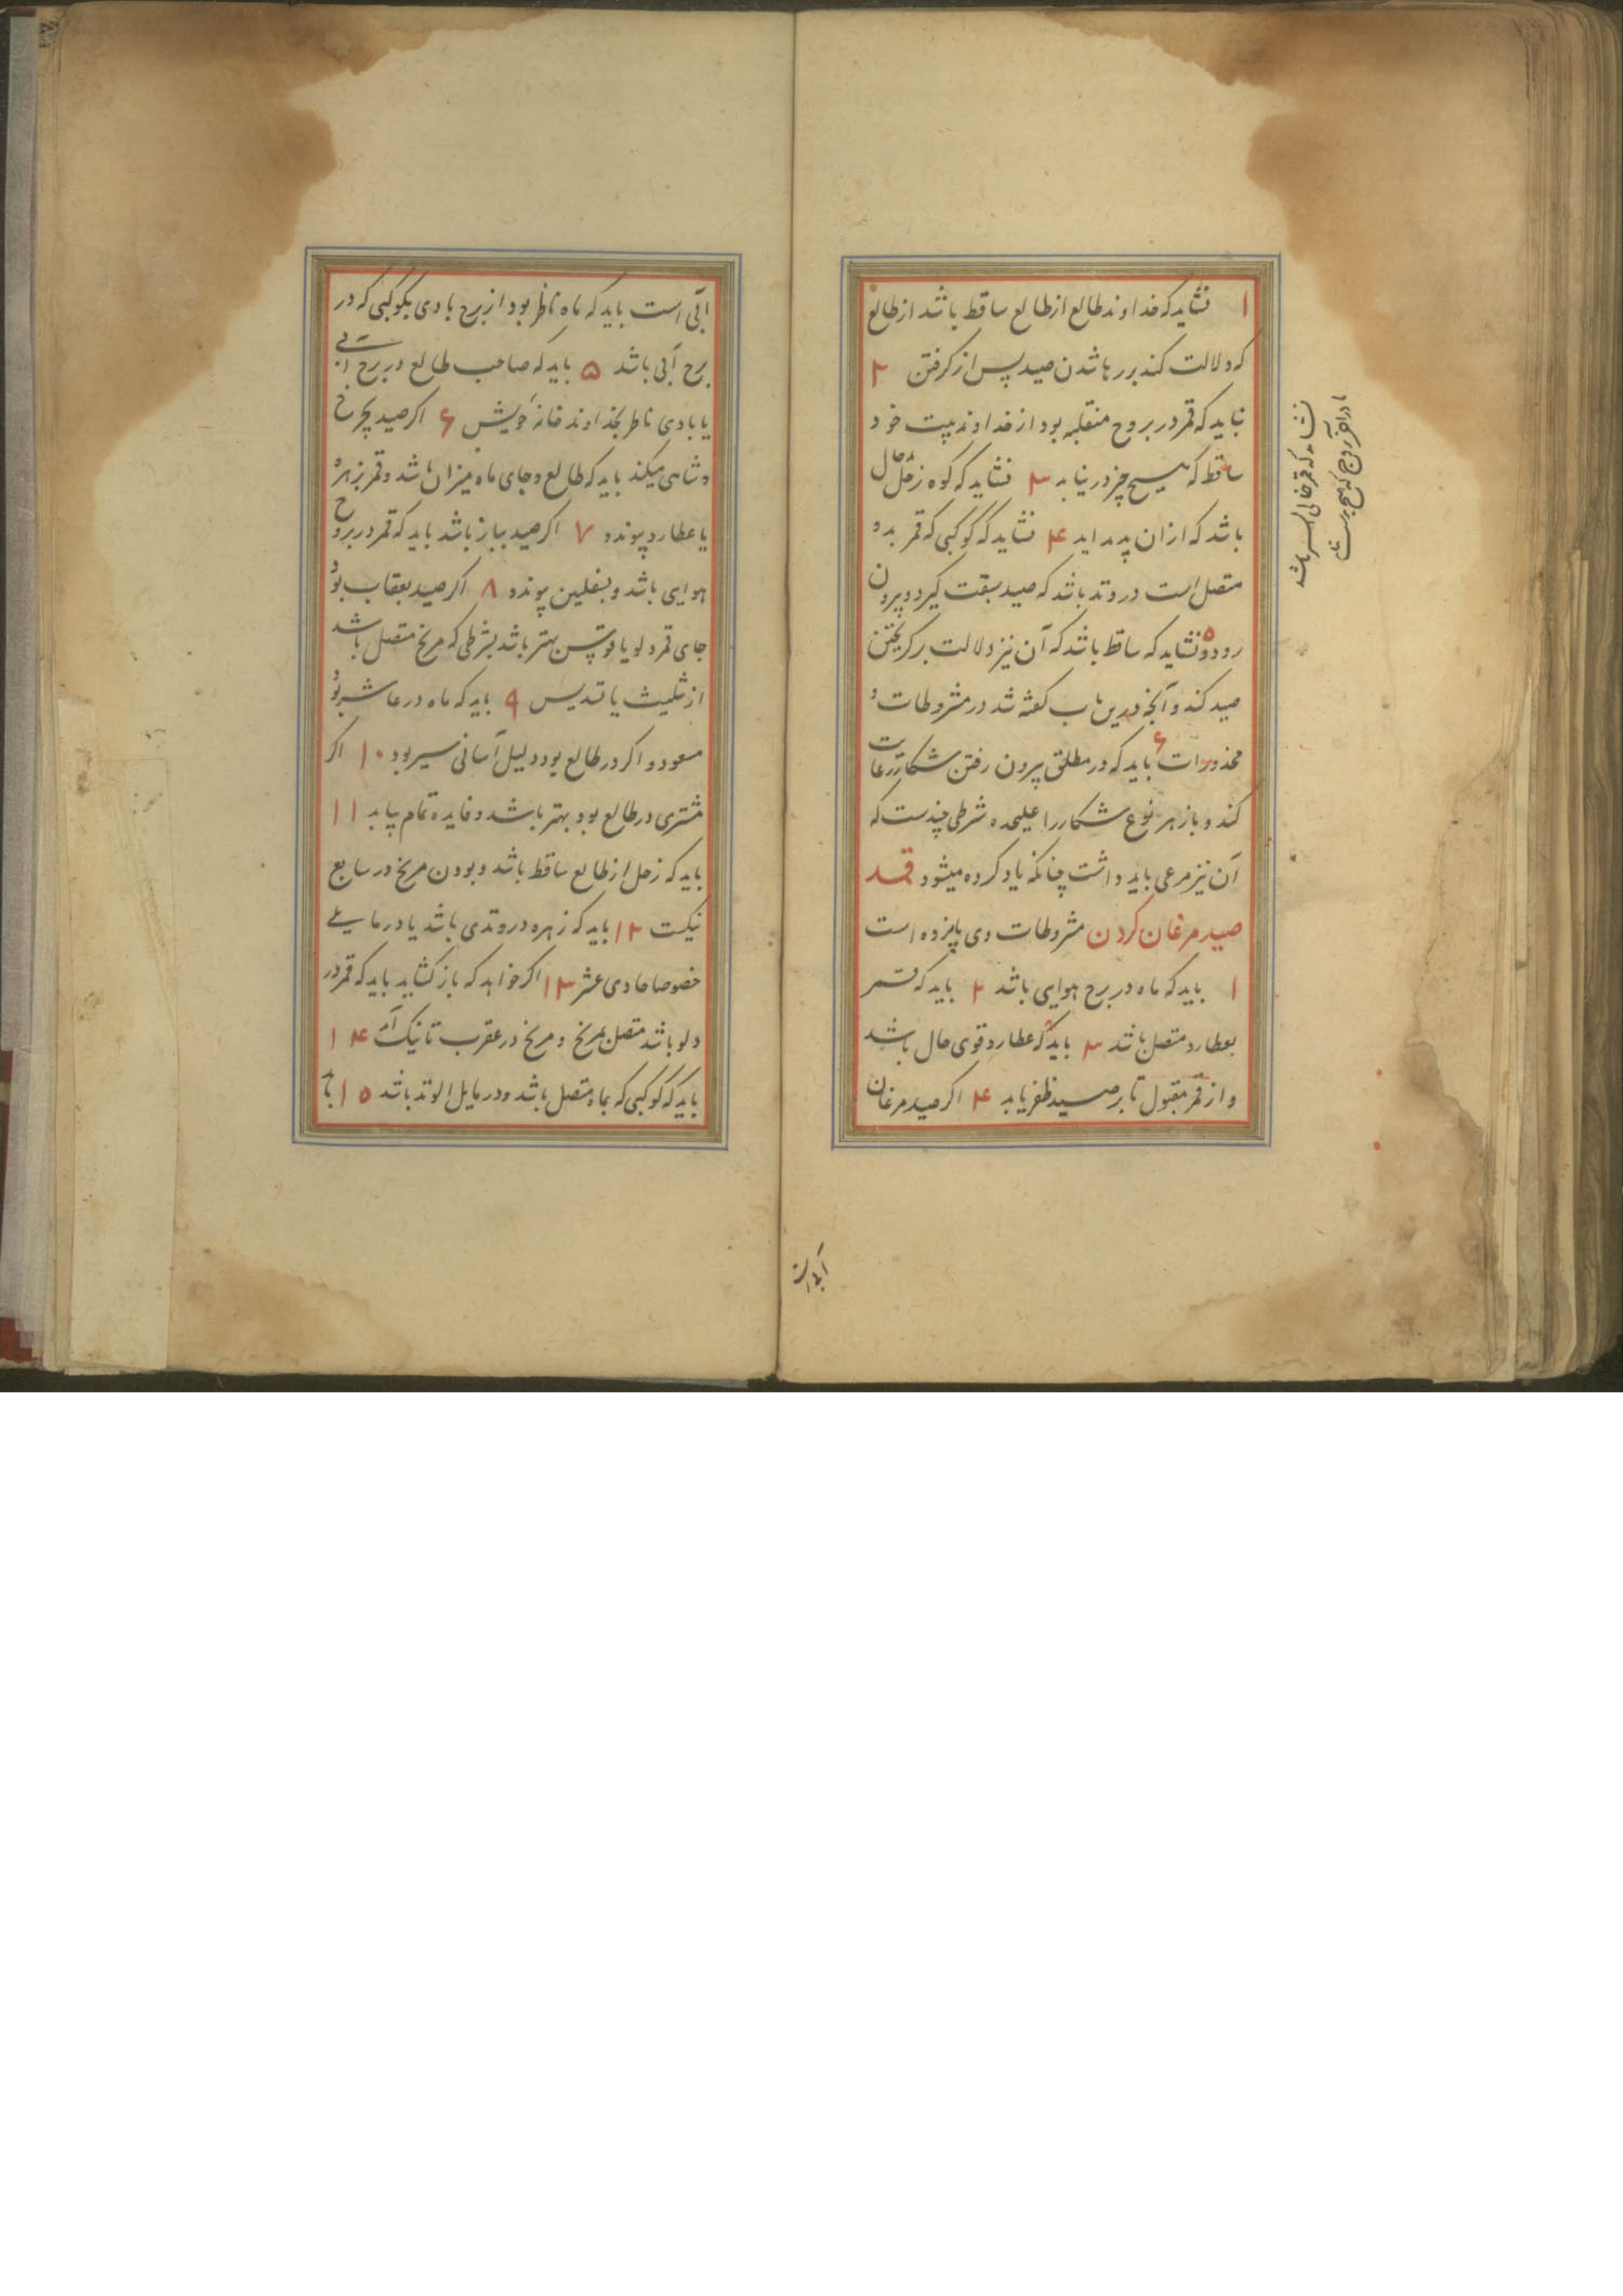 ۱ نشاید که خداوند طالع از طالع ساقط باشد از طالع
که دلالت کند بر رها شدن صید پس از کرفتن ۲
نباید که قمر در بروج منقلبه بود از خداوند بیت خود
ساقط که هیسح چیز در نیابد ۳ نشاید که کوه زحل
باشد که ازان پدید اید ۴ نشاید که کوکبی که قمر بدو
متصل است در وتد باشد که صید سبقت کیرد و بیرون
رود ۵ و نشاید که ساقط باشد که آن نیز دلالت بر کریختن
صید کند و آنچه درین باب کفته شد در مشروطات و
محذورات ۶ باید که در مطلق بیرون رفتن شکار رعایت
کند و باز هر نوع شکار را علیحده شرطی چندست که
آن نیز مرعی باید داشت چنانکه یاد کرده میشود قصد
صید مرغان کردن مشروطات وی پانزده است
۱ باید که ماه در برج هوایی باشد ۲ باید که قمر
بعطارد متصل باشد ۳ باید که عطارد قوی حال باشد
و از قمر مقبول تا بر صید ظفر یابد ۴ اکر صید مرغان
نشاید که قمر خالی السیر باشد
یا در آخر بروج که هیچ بدست نیاید
آبی است
آبی است باید که ماه ناظر بود از برج بادی بکوکبی که در
برج آبی باشد ۵ باید که صاحب طالع در برج آبی
یا بادی ناظر بخداوند خانهٔ خویش ۶ اکر صید بچرخ
و شاهین میکند باید که طالع و جای ماه میزان باشد و قمر بزهره
یا عطارد پیوندد ۷ اکر صید بباز باشد باید که قمر در بروج
هوایی باشد و بسفلین پیوندد ۸ اکر صید بعقاب بود
جای قمر دلو یا قوس بهتر باشد بشرطی که مریخ متصل باشد
از تثلیث یا تسدیس ۹ باید که ماه در عاشر بود
مسعود و اکر در طالع بود دلیل آسانی سیر بود ۱۰ اکر
مشتری در طالع بود بهتر باشد و فایده تمام یابد ۱۱
باید که زحل از طالع ساقط باشد و بودن مریخ در سابع
نیکست ۱۲ باید که زهره در وتدی باشد یا در مایلی
خصوصا حادی عشر ۱۳ اکر خواهد که باز کشاید باید که قمر در
دلو باشد متصل بمریخ و مریخ در عقرب تا نیک آید ۱۴
باید که کوکبی که بماه متصل باشد و در مایل الوتد باشد ۱۵ باید